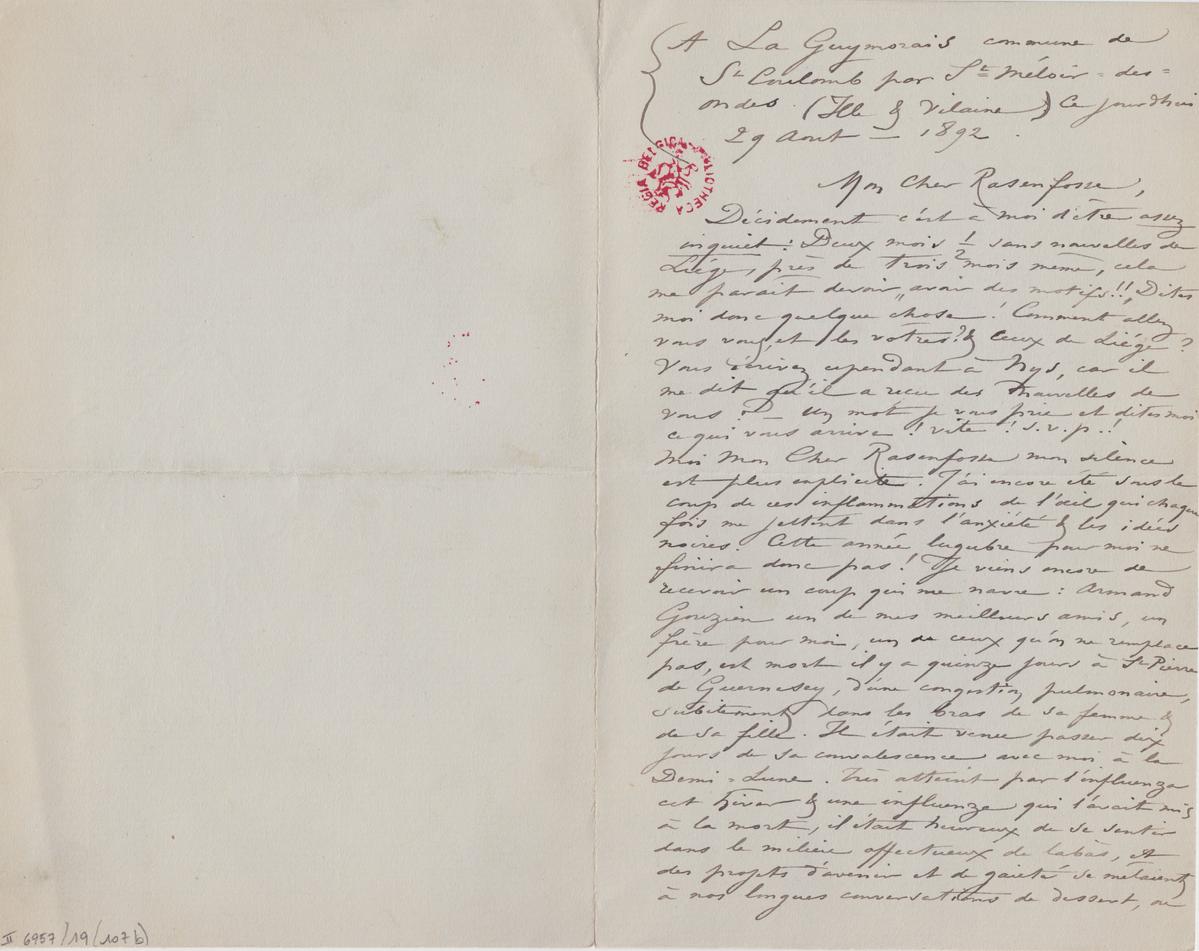 A La Guymorais commune de
St Coulomb par St Méloir-des-
ondes. (Ille & Vilaine) Ce jourdhui
29 Aout — 1892.
REGIA BELGICA BIBLIOTHECA
Mon Cher Rasenfosse,
Décidement c'est à moi d'être assez
inquiet: Deux mois 1/2 sans nouvelles de
Liége, près de trois mois même, cela
me parait devoir „avoir des motifs!!„ Dites
moi donc quelque chose! Comment allez
vous vous, et les vôtres? & ceux de Liége?
Vous écrivez cependant à Nys, car il
me dit qu'il a recu des nouvelles de
vous? — un mot je vous prie et dites moi
ce qui vous arrive! vite! s.v.p.!
Moi Mon Cher Rasenfosse mon silence
est plus explicite. J'ai encore été sous le
coup de ces inflammations de l'œil qui chaque
fois me jettent dans l'anxiété & les idées
noires. Cette année lugubre pour moi ne
finira donc pas! Je viens encore de
recevoir un coup qui me navre: Armand
Gouzien un de mes meilleurs amis, un
frère pour moi, un de ceux qu'on ne remplace
pas, est mort il y a quinze jours à St Pierre
de Guernesey, d'une congestion pulmonaire,
subitement dans les bras de sa femme &
de sa fille. Il était venu passer dix
jours de sa convalescence avec moi à la
Demi-Lune. Très atteint par l'influenza
cet hiver & une influenza qui l'avait mis
à la mort, il était heureux de se sentir
dans le milieu affectueux de labàs, et
des projets d'avenir et de gaieté se mêlaient
à nos longues conversations de dessert, ou
II 6957/19(107b)